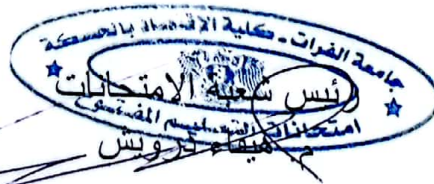 جامعة الفرات - كلية الاقتصاد بالحسكة
رئيس شعبة الامتحانات
امتحانات التعليم المفتوح
م. هيفاء درويش